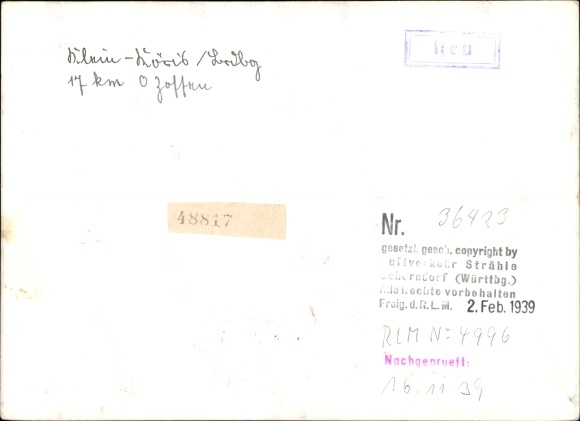 Neu
Klein-Köris /Brdbg
17 km O Zossen
48817
Nr. 36423
gesetzl. gesch. copyright by
Luftverkehr Strähle
Schorndorf (Württbg.)
Alle Rechte vorbehalten
Freig. d. R.L.M. 2. Feb. 1939
RLM No 4996
Nachgeprueft:
16 11 39